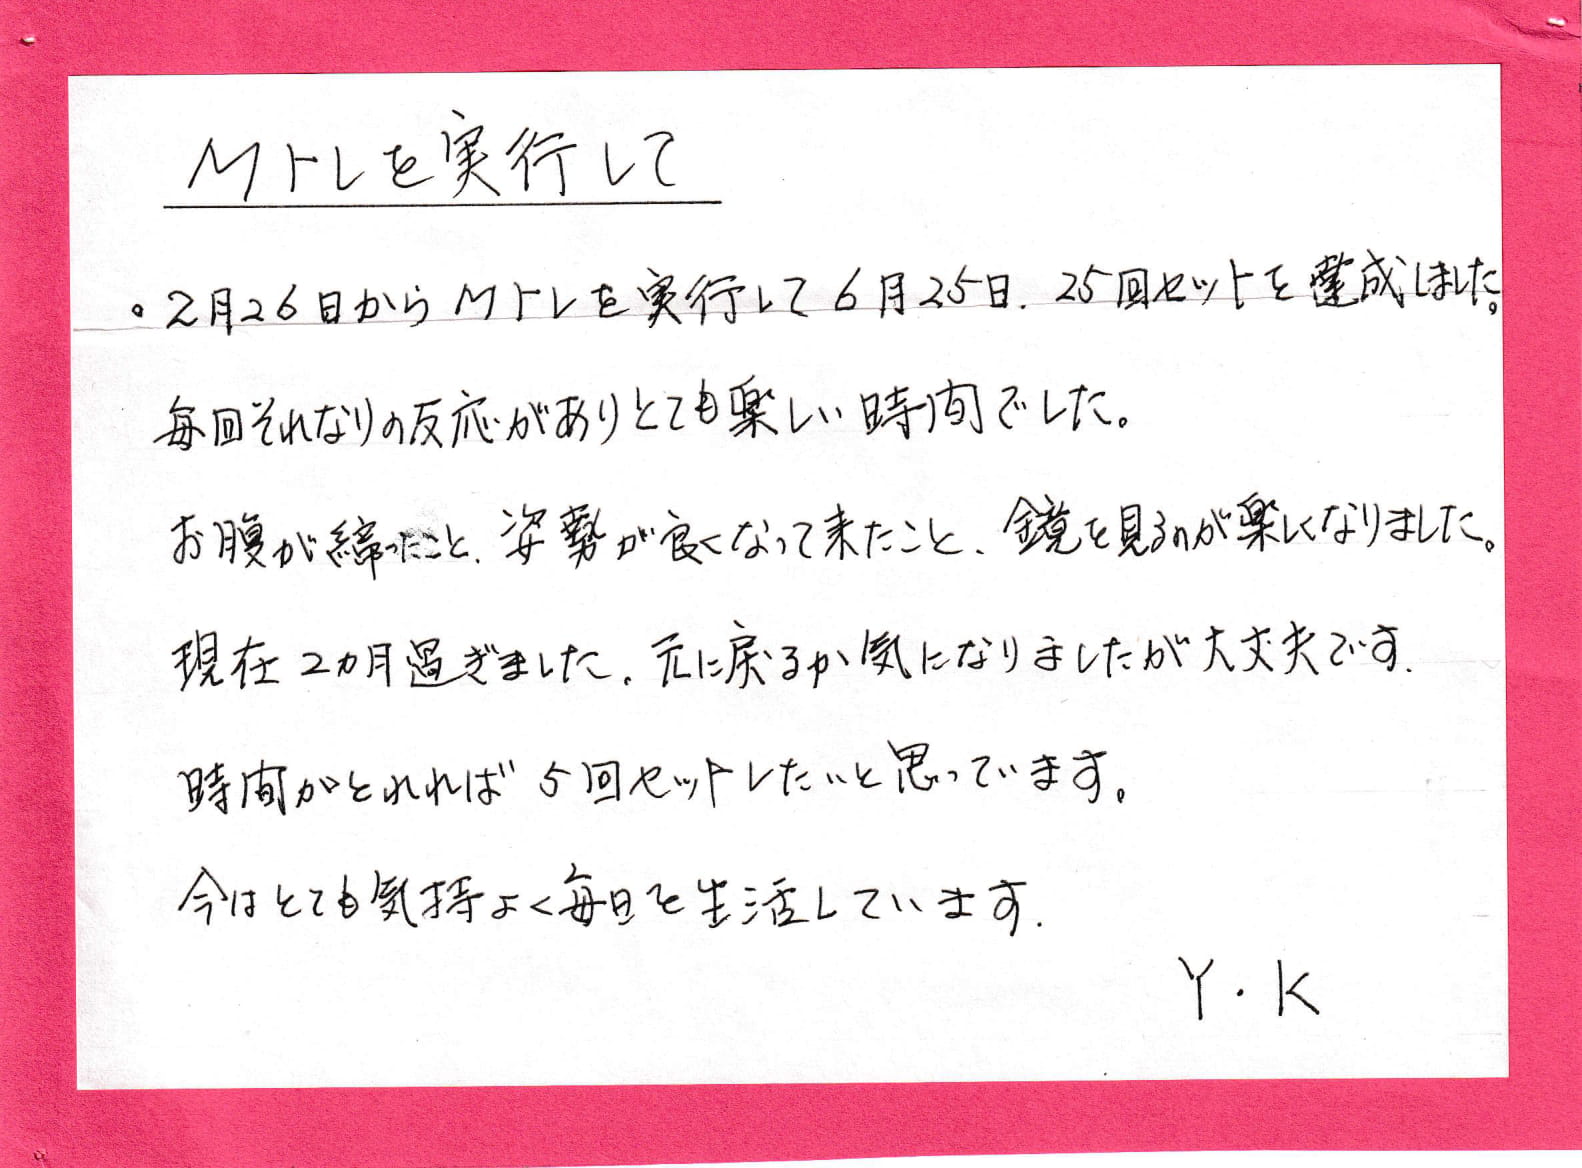 Mトレを実行して
。2月26日からMトレを実行して6月25日.25回セットを達成しました。
毎回それなりの反応がありとても楽しい時間でした。
お腹が締ったこと、姿勢が良くなって来たこと、鏡を見るのが楽しくなりました。
現在2カ月過ぎました。元に戻るか気になりましたが大丈夫です.
時間がとれれば5回セットしたいと思っています。
今はとても気持よく毎日を生活しています.
Y・K